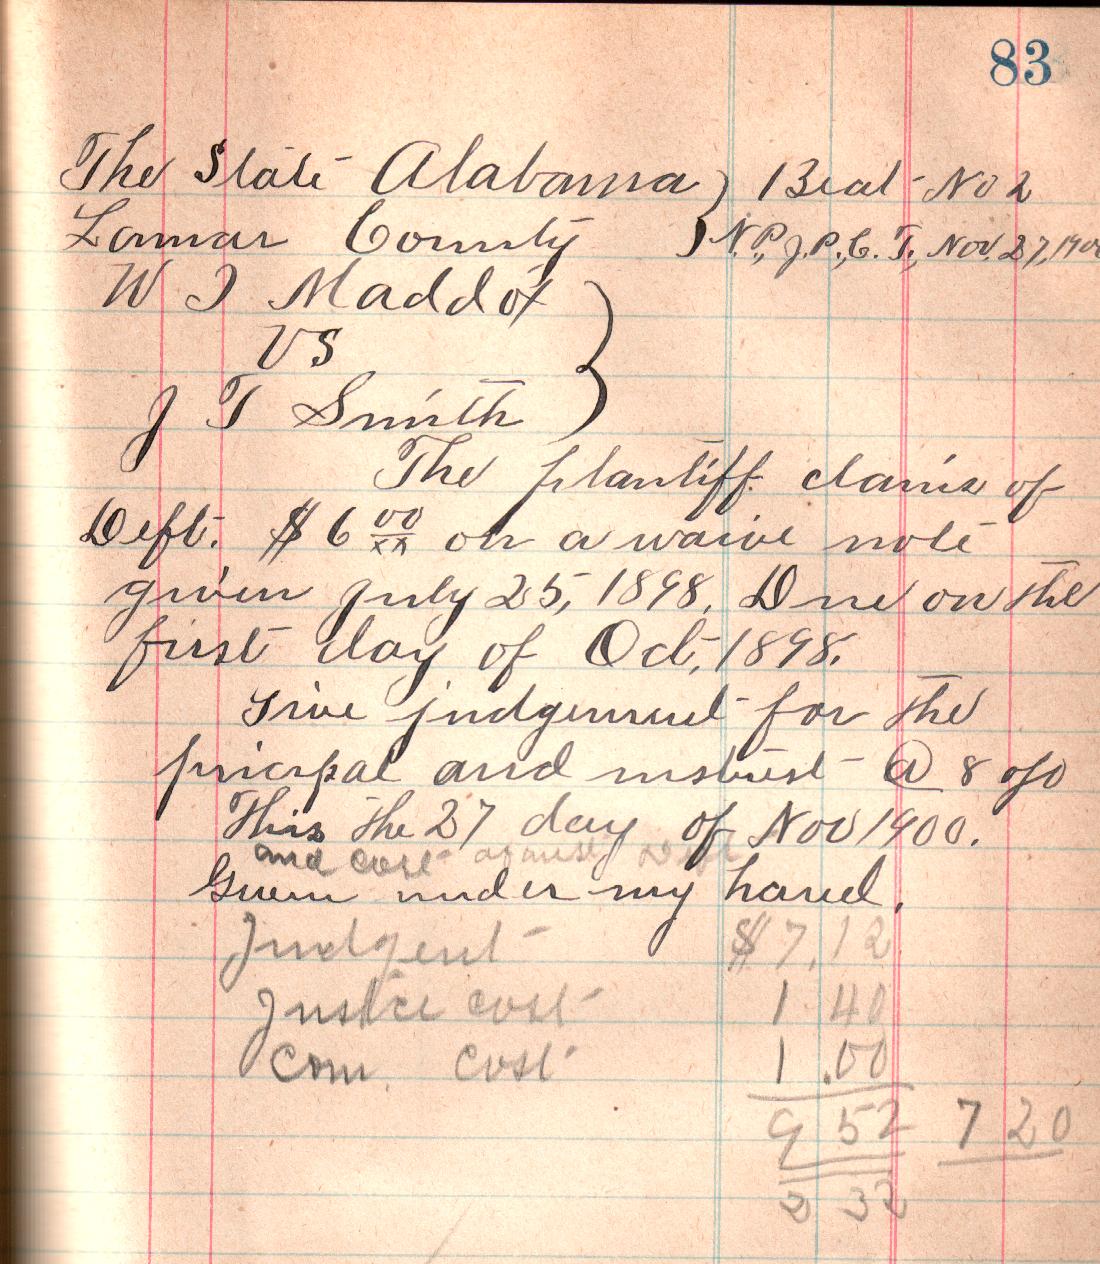 83
The State Alabama ) Beat No 2
Lamar County ) N.P., J.P., C.T., Nov. 27, 1900
W T Maddox
VS
J T Smith
The plantiff claims of
Deft. $6 00/xx on a waive note
given July 25, 1898. Due on the
first day of Oct, 1898.
Give judgement for the
pricipal and instrest @ 8 o/o
This the 27 day of Nov 1900.
and cost against Deft
Given under my hand.
Judgent $7.12
Justice cost 1 40
Com. cost 1.00
9 52 7 20
2 32